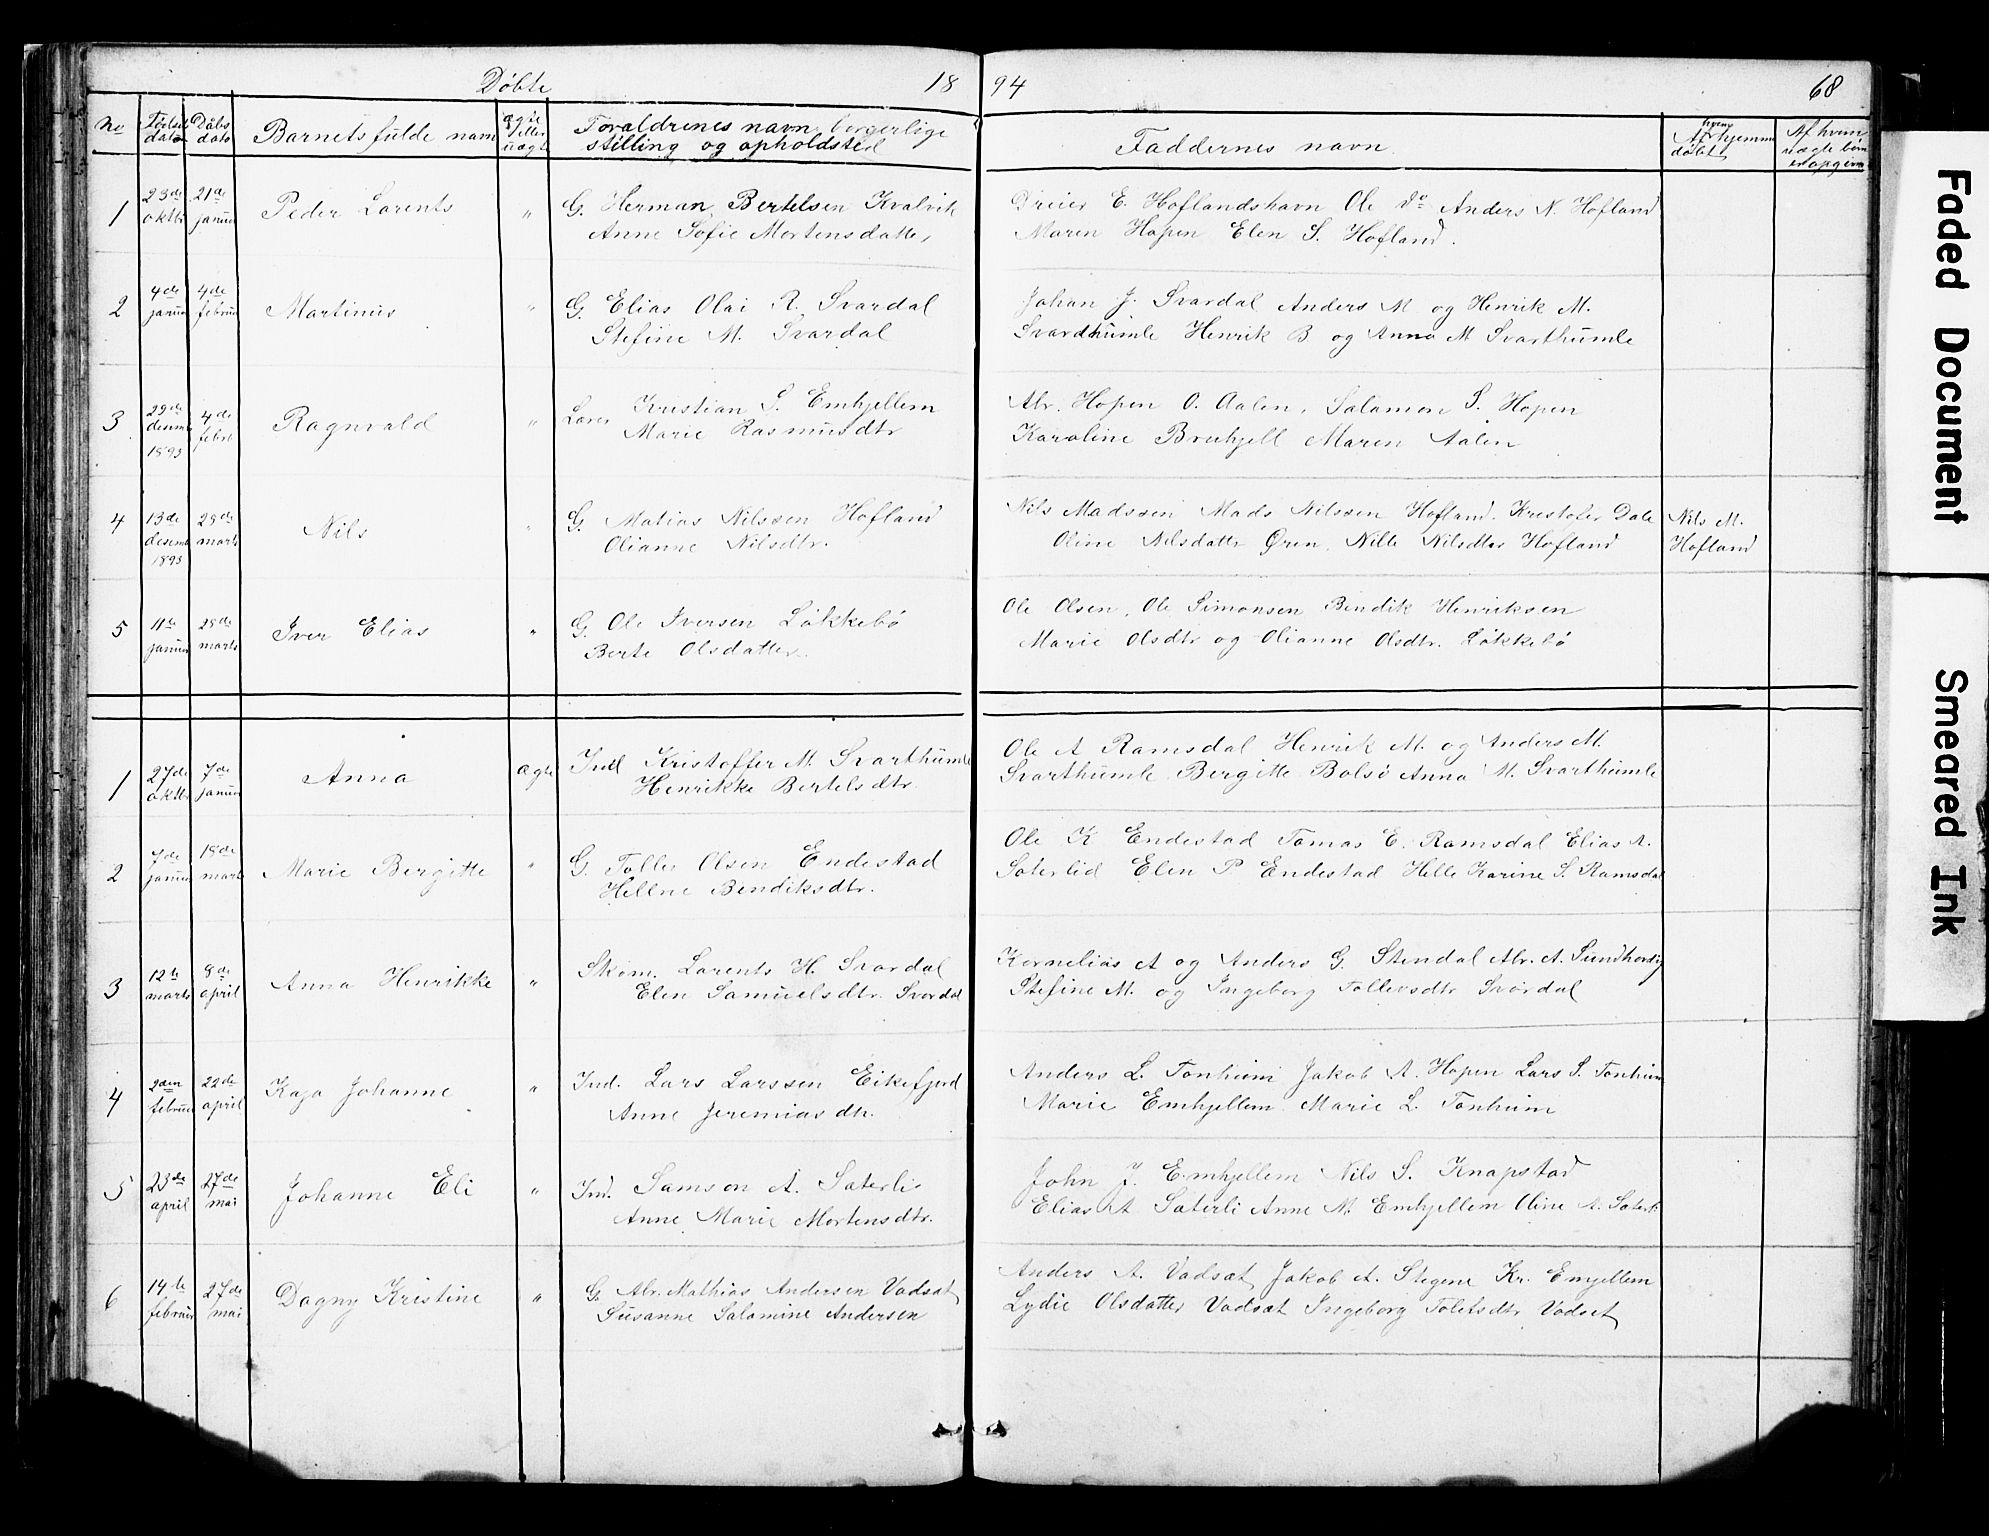 Døbte 1894 68
No Fødsels dato Dåbs dato Barnets fulde navn ægte eller uægte Foraldrenes navn, borgerlige stilling og opholdsted Faddernes navn Af hvem hjemme døbt Af hvem uægte børn er opgivne
1 23de oktbr 21de januar Peder Lorents " G. Herman Bertelsen Kvalvik
Anne Sofie Mortensdatter
Dreier E. Hoflandshavn Ole Do Anders N. Hofland
Maren Hopen Elen S. Hofland.
2 4de januar 4de februar Martinus " G. Elias Olai R. Svardal
Stefine M. Svardal
Johan J. Svardal Anders M. og Henrik M.
Svardhumle Henrik B og Anna M Svarthumle
3 29de desemb 1893 4de febr Ragnvald " Lærer Kristian S. Emhjellem
Marie Rasmusdtr
Abr. Hopen O. Aalen, Salamon S. Hopen
Karoline Bruhjell Maren Aalen
4 13de desemb 1893 28de marts Nils " G. Matias Nilssen Hofland
Olianne Nilsdtr.
Nils Madssen Mads Nilssen Hofland. Kristofer Dale
Oline Nilsdattr Øren, Nille Nilsdtr Hofland
Nils M.
Hofland
5 11te januar 25de marts Iver Elias " G. Ole Iversen Løkkebø
Berte Olsdatter
Ole Olsen, Ole Simonsen Bendik Henriksen
Marie Olsdtr og Olianne Olsdtr. Løkkebø
1 27de oktbr 7de januar Anna ægte Ind Kristoffer M. Svarthumle
Henrikke Bertelsdtr.
Ole A Ramsdal Henrik M. og Anders M.
Svarthumle Bergitte Bolsø Anna M. Svarthumle
2 7de januar 18de marts Marie Bergitte " G. Tolles Olsen Endestad
Hellne Bendiksdtr.
Ole K Endestad Tomas E. Ramsdal Elias A.
Saterlid Elen P Endestad Helle Karine S. Ramsdal
3 12te marts 8de april Anna Henrikke " Skom. Lorents H. Svardal
Elen Samuelsdtr. Svardal
Kornelias A og Anders G. Stendal Abr. A.
Stefine M. og Ingeborg Tollevsdtr Svardal
4 2den februar 22de april Kaja Johanne " Ind. Lars Larssen Eikefjord
Anne Jeremiasdtr.
Anders L. Tonheim Jakob A. Hopen Lars S. Tonheim
Marie Emhjellem Marie L. Tonheim
5 23de april 27de mai Johanne Eli " Ind. Samson A. Saterli
Anne Marie Mortensdtr.
John J. Emhjellem Nils S. Knapstad
Elias A Saterli Anne M. Emhjellem Oline A. Saterli
6 14te februar 27de mai Dagny Kristine " G. Abr. Mathias Andersen Vadsæt
Susanne Salamine Andersen
Anders A. Vadsæt Jakob A. Stegene Kr. Emjellem
Lydie Olsdatter Vadsæt Ingeborg Toletsdtr. Vadset
Faded Document
Smeared Ink